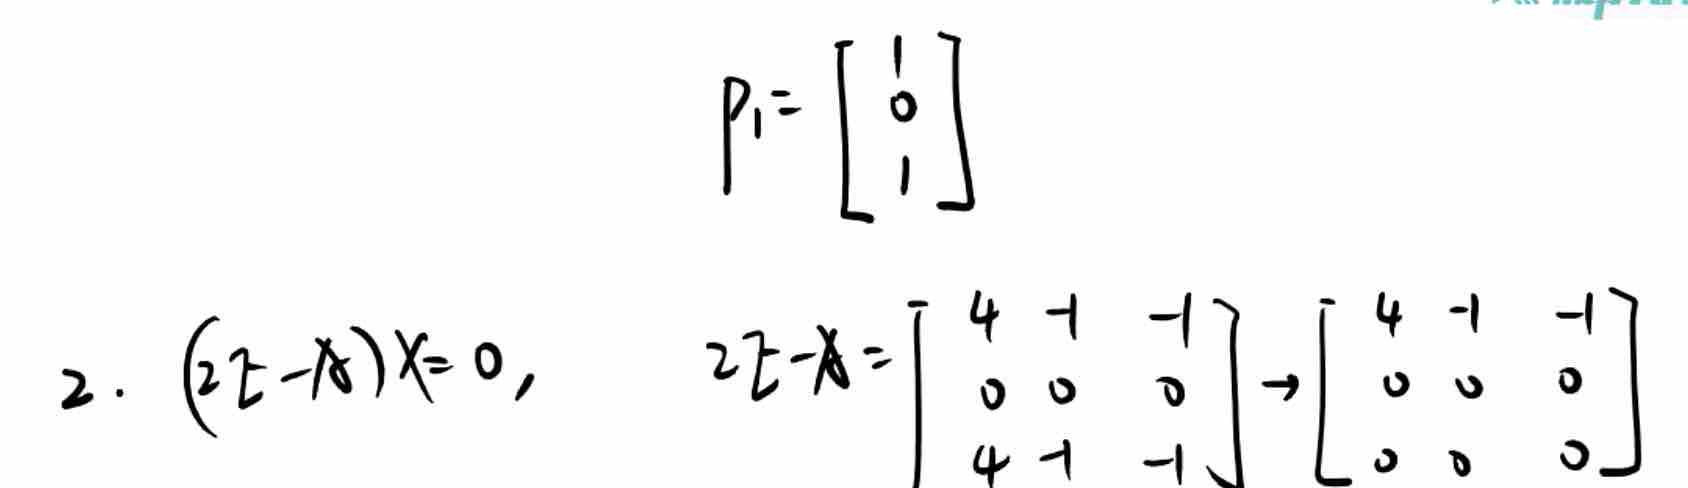 P₁ = [1 0 1]
2. (2E-A)X=0, 2E-A = [4 -1 -1; 0 0 0; 4 -1 -1] → [4 -1 -1; 0 0 0; 0 0 0]